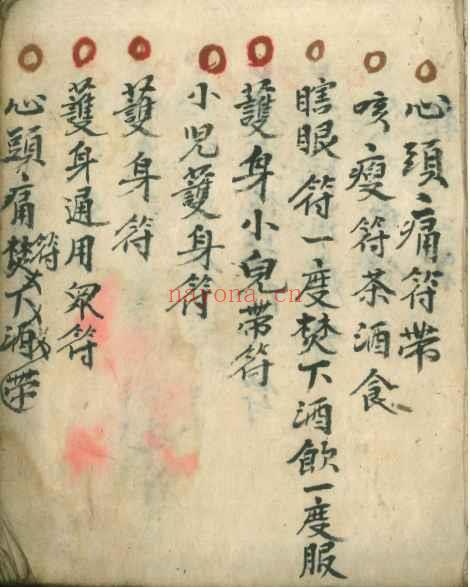 心頭痛符帶
咳瘦符茶酒食
瞎眼符一度焚下酒飲一度服
護身小皃帶符
小児護身符
護身符
護身通用眾符
心頭痛符焚下酒帶
nayona.cn